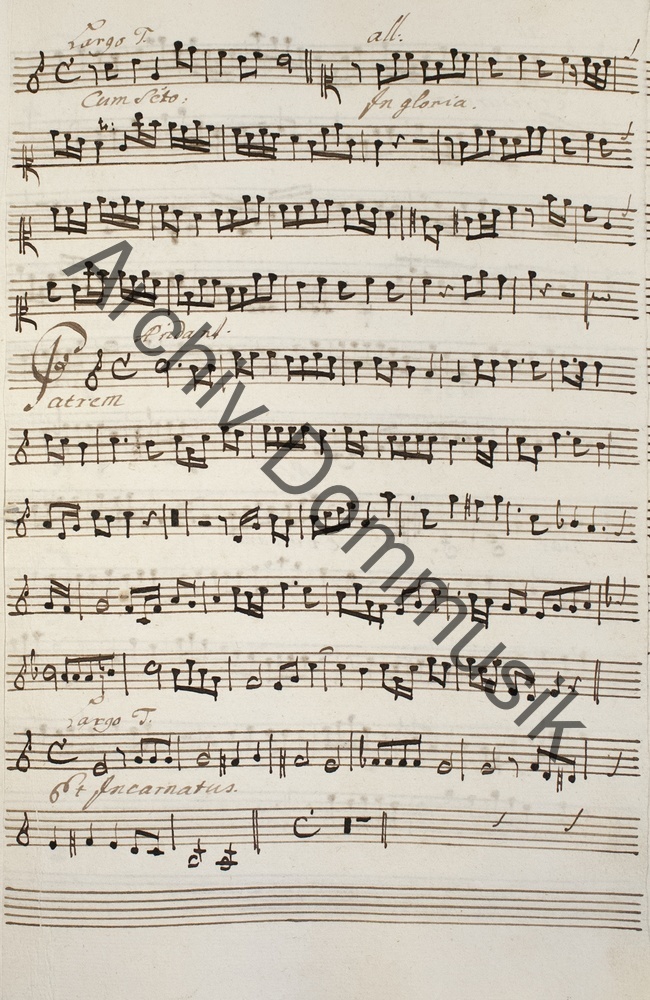 Largo T. all.
Cum Sctõ: In gloria.
Andant.
Patrem
Largo T.
Et Incarnatus.
Archiv Dommusik